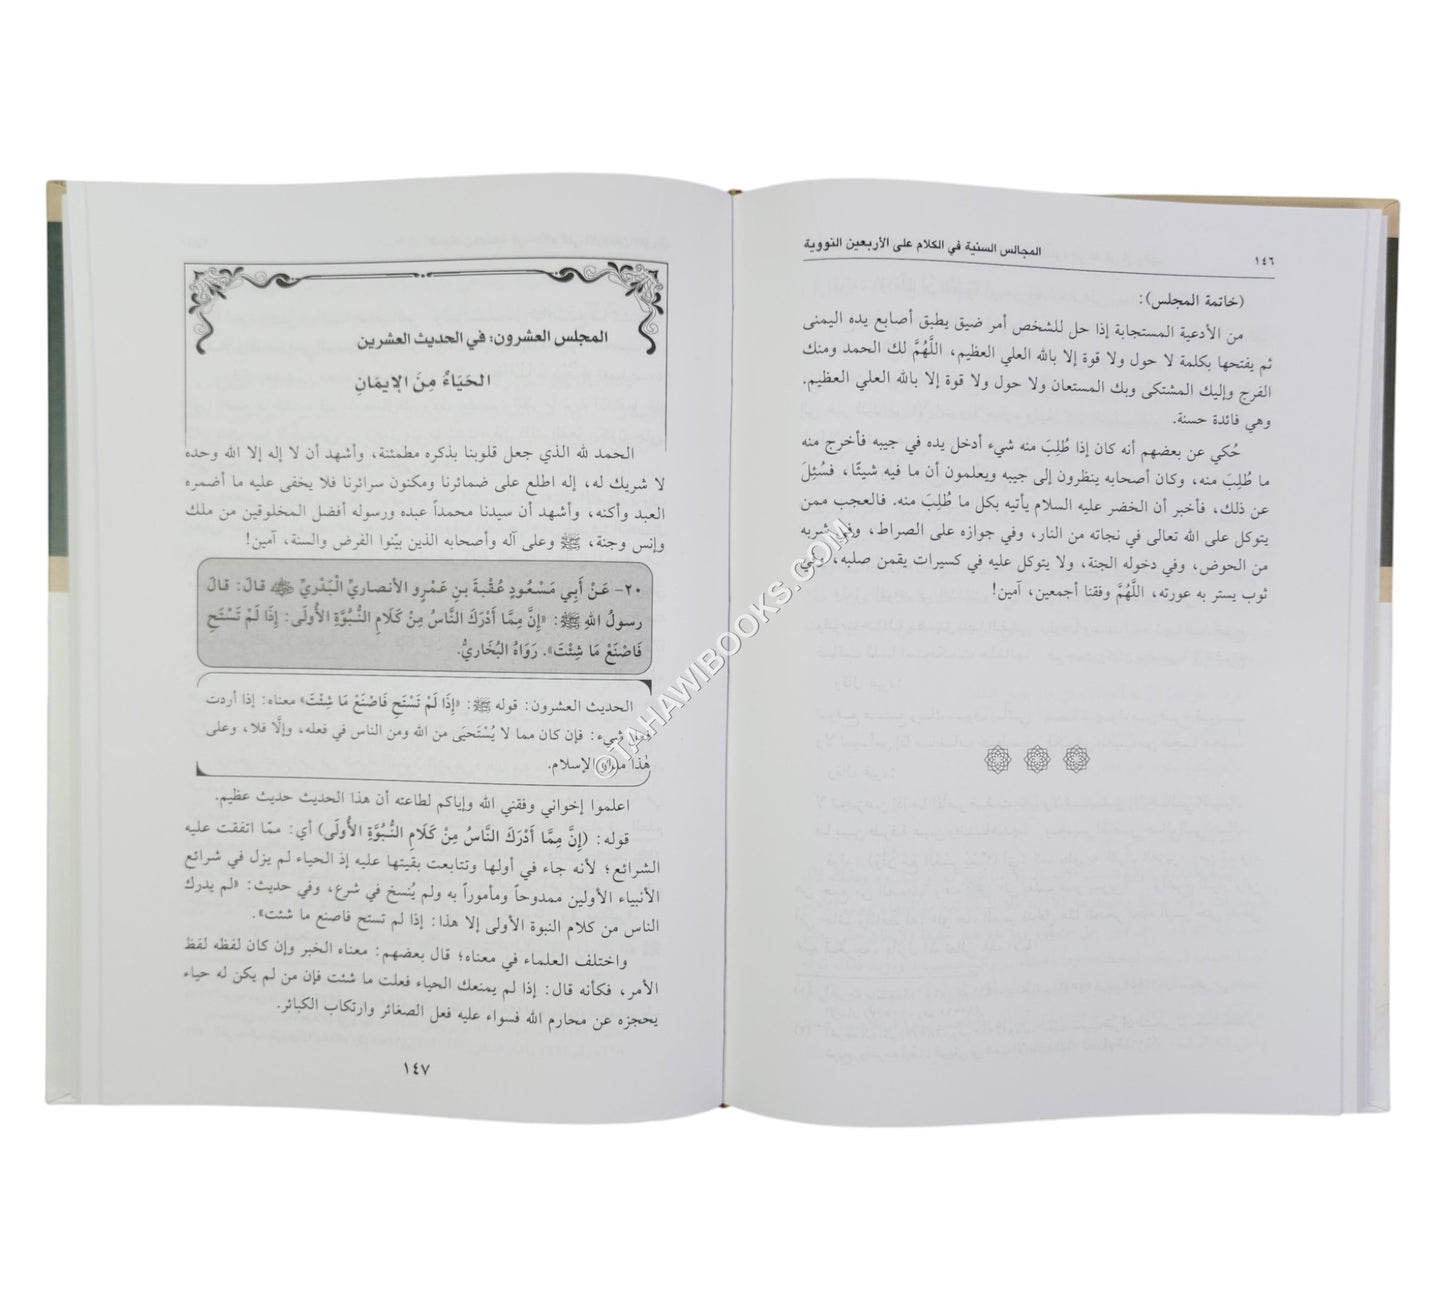 ١٤٦
المجالس السنية في الكلام على الأربعين النووية
(خاتمة المجلس):
من الأدعية المستجابة إذا حل للشخص أمر ضيق يطبق أصابع يده اليمنى
ثم يفتحها بكلمة لا حول ولا قوة إلا بالله العلي العظيم، اللَّهُمَّ لك الحمد ومنك
الفرج وإليك المشتكى وبك المستعان ولا حول ولا قوة إلا بالله العلي العظيم.
وهي فائدة حسنة.
حُكي عن بعضهم أنه كان إذا طُلِبَ منه شيء أدخل يده في جيبه فأخرج منه
ما طُلِبَ منه، وكان أصحابه ينظرون إلى جيبه ويعلمون أن ما فيه شيئًا، فسُئِلَ
عن ذلك، فأخبر أن الخضر عليه السلام يأتيه بكل ما طُلِبَ منه. فالعجب ممن
يتوكل على الله تعالى في نجاته من النار، وفي جوازه على الصراط، وفي شربه
من الحوض، وفي دخوله الجنة، ولا يتوكل عليه في كسيرات يقمن صلبه، وفي
ثوب يستر به عورته، اللَّهُمَّ وفقنا أجمعين، آمين!
المجلس العشرون: في الحديث العشرين
الحَيَاءُ مِنَ الإيمَانِ
الحمد لله الذي جعل قلوبنا بذكره مطمئنة، وأشهد أن لا إله إلا الله وحده
لا شريك له، إله اطلع على ضمائرنا ومكنون سرائرنا فلا يخفى عليه ما أضمره
العبد وأكنه، وأشهد أن سيدنا محمداً عبده ورسوله أفضل المخلوقين من ملك
وإنس وجنة، ﷺ وعلى آله وأصحابه الذين بيّنوا الفرض والسنة، آمين!
٢٠- عَنْ أَبِي مَسْعُودٍ عُقْبَةَ بنِ عَمْرٍو الأنصاريِّ الْبَدْرِيِّ رضي الله عنه قالَ: قالَ
رسولُ اللهِ ﷺ: «إِنَّ مِمَّا أَدْرَكَ النَّاسُ مِنْ كَلَامِ النُّبُوَّةِ الأُولَى: إِذَا لَمْ تَسْتَحِ
فَاصْنَعْ مَا شِئْتَ». رَوَاهُ البُخَاريُّ.
الحديث العشرون: قوله ﷺ: «إِذَا لَمْ تَسْتَحِ فَاصْنَعْ مَا شِئْتَ» معناه: إذا أردت
فعل شيء: فإن كان مما لا يُسْتَحَيَى من الله ومن الناس في فعله، وإلَّا فلا، وعلى
هٰذا مدار الإسلام.
اعلموا إخواني وفقني الله وإياكم لطاعته أن هذا الحديث حديث عظيم.
قوله: (إِنَّ مِمَّا أَدْرَكَ النَّاسُ مِنْ كَلَامِ النُّبُوَّةِ الأُولَى) أي: ممّا اتفقت عليه
الشرائع؛ لأنه جاء في أولها وتتابعت بقيتها عليه إذ الحياء لم يزل في شرائع
الأنبياء الأولين ممدوحاً ومأموراً به ولم يُنسخ في شرع، وفي حديث: «لم يدرك
الناس من كلام النبوة الأولى إلا هذا: إذا لم تستح فاصنع ما شئت».
واختلف العلماء في معناه؛ قال بعضهم: معناه الخبر وإن كان لفظه لفظ
الأمر، فكأنه قال: إذا لم يمنعك الحياء فعلت ما شئت فإن من لم يكن له حياء
يحجزه عن محارم الله فسواء عليه فعل الصغائر وارتكاب الكبائر.
١٤٧
©TAHAWIBOOKS.COM